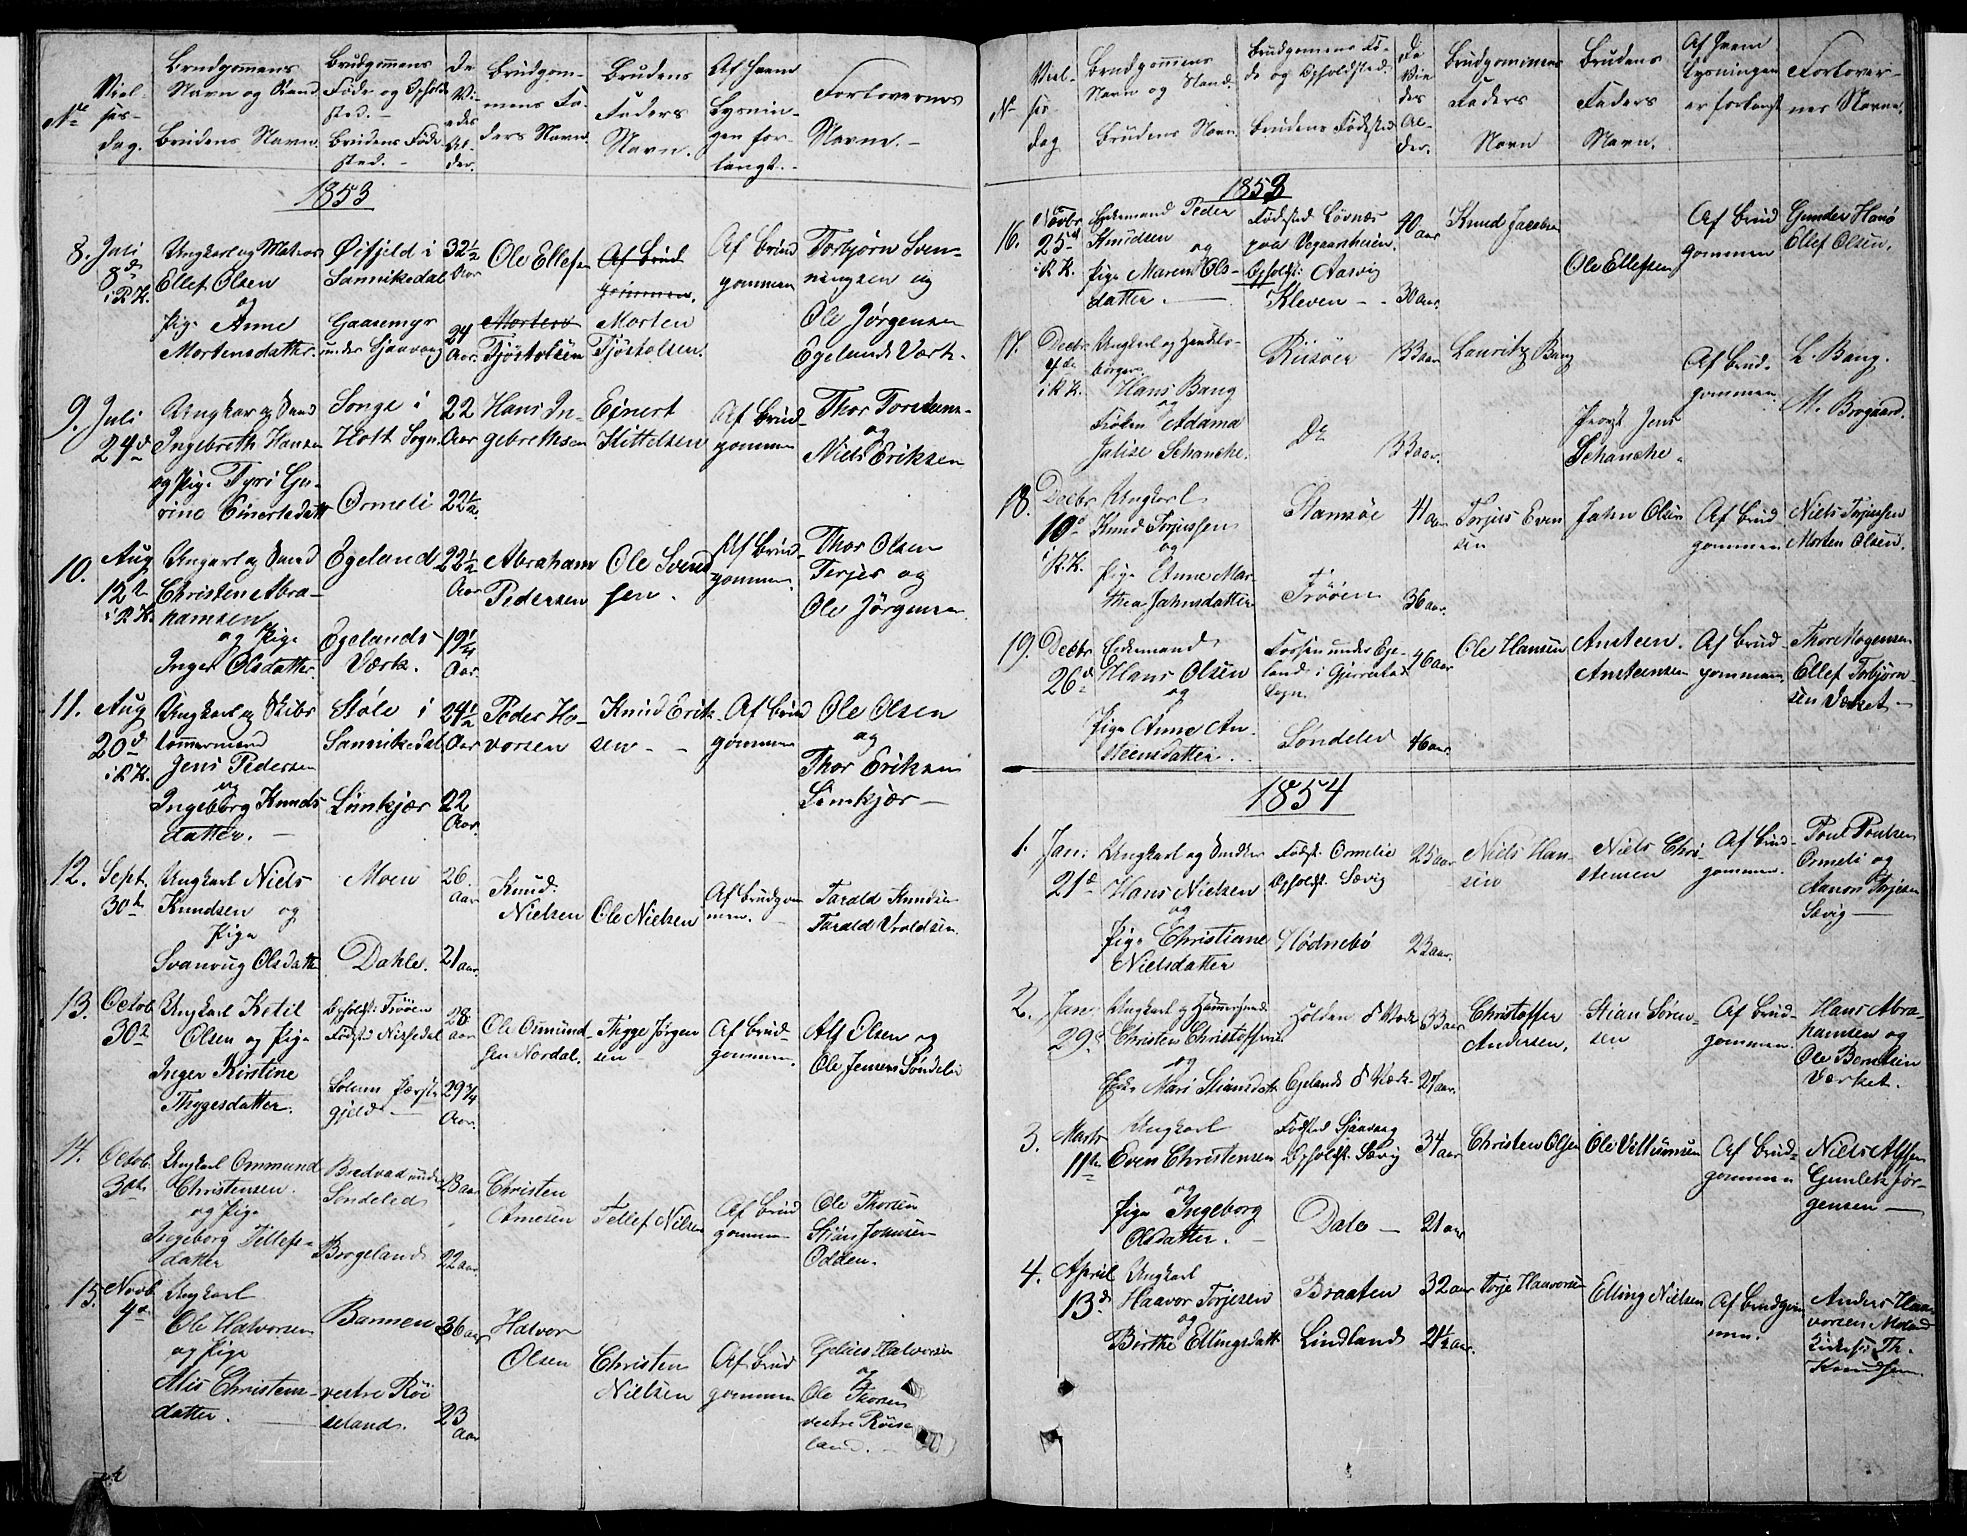 No
Viel-
ses-
dag.
Brudgommens
Navn og Stand
Brudens Navn.
Brudgommens
Føde og Opholds
sted. -
Brudens Føde
sted. -
De
Vi-
edes
Al-
der.
Brudgom-
mens Fa-
ders Navn.
Brudens
Faders
Navn.
Af hvem
Lysnin-
gen for-
langt. -
Forlovernes
Navne. -
1853
8. Juli
8de
i R. K.
Ungkarl og Matros
Ellef Olsen
og
Pige Anne
Mortensdatter.
Øifjeld i
Sannikedal
Gaasemyr
under Sjaavaag
32½
Aar
24
Aar.
Ole Ellefsen
Morten
Tjøstolsen
Af Brud
gommen.
Morten
Tjøstolsen.
Af Brud
gommen
Torbjørn Sven-
ningsen og
Ole Jørgensen
Egelands Værk.
9. Juli
24d
Ungkar og Smed
Ingebreth Hansen
og Pige Tyri Gu-
rine Einertsdatt
Songe i
Holt Sogn.
Ormeli
22
Aar
22½
a.
Hans In-
gebrethsen
Einert
Kittelsen
Af Brud-
gommen
Thor Torstens-
og
Niels Eriksen
10. Aug
12te
i R. K.
Ungkarl og Smed
Christen Abra-
hamsen
og Pige
Inger Olsdatter.
Egeland
Egelands
Værk.
22½
Aar
19¼
Aar.
Abraham
Pedersen
Ole Svend
sen.
Af Brud-
gommen
Thor Olsen
Terjes og
Ole Jørgensen
11. Aug
20d
i R. K.
Ungkarl og Skibs
tømmermand
Jens Pedersen
og
Ingeborg Knuds
datter. -
Støle i
Sannikedal
Lunkjær
24½
Aar
22
Aar.
Peder Ho-
vorsen
Knud Erik
sen - -
Af Brud
gommen
Ole Olsen
og
Thor Eriksen
Lunkjær -
12. Sept.
30te
Ungkarl Niels
Knudsen og
Pige
Svanaug Olsdatte
Moen
Dahle.
26.
Aar
21 aar.
Knud.
Nielsen
Ole Nielsen
Af Brudgom
men. -
Tarald Knudsen
Tarald Uroldsen.
13. Octob.
30te
Ungkarl Ketil
Olsen og Pige
Inger Kirstine
Thygesdatter.
Opholdst: Trøen
Fødst: Nissedal
Solum Præste
gjeld -
28
aar
29¾
Aar.
Ole Osmund
sen Nordal.
Tygge Jørgen
sen -
Af Brud-
gommen.
Alf Olsen og
Ole Jensen Søndeled
14. Octob.
30te
Ungkarl Ommund
Christensen.
og Pige
Ingeborg Tellefs-
datter
Bradvad under
Søndeled
Borgeland
28 aar
22 aar.
Christen
Amesen
Tellef Nilsen
Af Brud
gommen -
Ole Thorsen
Stian Johnsen
Odden.
15. Novb
4de
Ungkarl
Ole Halvorsen
og Pige
Alis Christens-
datter.
Barmen
vestre Røi
seland.
36 aar
23
Aar
Halvor
Olsen
Christen
Nielsen
Af Brud
gommen
Gjeruls Halvorsen
og
Ole Thorsen
vestre Røise
land. -
N
Viel-
ses
dag
Brudgommens
Navn og Stand.
Brudens Navn.
Brudgommens Fø-
de og Opholdsted.
Brudens Fødested
De
Vie
des
Al-
der.
Brudgommens
Faders
Navn
Brudens
Faders
Navn.
Af hvem
Lysningen
er forlangt
Forlover-
nes Navne.
1853
16. Novbr
25d
i R. K.
Enkemand Peder
Knudsen
og
Pige Maren Ols-
datter. -
Fødested Løvnæs
paa Vegaarsheien.
Opholdst: Aasvig
Kleven - -
40
aar
30 aar.
Knud Jacobsen
Ole Ellefsen
Af Brud
gommen
Gunder Hanø
Ellef Olsen.
17. Decbr
4de
i R. K.
Ungkarl og Handels-
borger
Hans Bang
og
Frøken Adama
Jalise Schanche.
Riisøer
Do
33 aar
33 aar.
Lauritz Bang
Provst Jens
Schanche.
Af Brud-
gommen.
L. Bang.
M. Brogaard.
18. Decbr
10d
i R. K.
Ungkarl
Knud Torjussen
og
Pige Anne Mar-
thea Jahnsdatter
Stamsøe
Trøen
41 aar
36 aar.
Torjus Even
sen
Jahn Olsen
Af Brud
gommen
Niels Torjussen
Morten Olsen.
19. Decbr
26d
Enkemand
Hans Olsen
og
Pige Anne An-
steensdatter.
Fossen under Ege-
land i Gjerrestad
Sogn.
Søndeled
46 aar
46 aar.
Ole Hansen
Ansteen
Ansteensen
Af Brud
gommen
Thore Mogensen
Ellef Torbjørn-
sen Værket -
1854
1. Jan:
21d
Ungkarl og Snedker
Hans Nielsen
og
Pige Christiane
Nielsdatter
Fødst: Ormelie
Opholdst: Sævig
Hødnebø
25 aar
23 aar.
Niels Han-
sen
Niels Chri-
stensen
Af Brud-
gommen.
Poul Poulsen
Ormeli og
Aanon Terjesen
Sævig -
2. Jan:
29d
Ungkarl og Hammersmed
Christen Christoffersen
og
Enke Mari Stiansdatt
Holden's Værk
Egelands Værk.
33 aar
27 aar.
Christoffer
Andersen,
Stian Søren-
sen
Af Brud-
gommen.
Hans Abra-
hamsen og
Ole Berntsen
Værket.
3. Marts
11te
Ungkarl
Even Christensen
og
Pige Ingeborg
Olsdatter. -
Fødsted Sjaavaag
Opholdst: Sævig
Dale -
34 aar
21 aar
Christen Olsen
Ole Villumsen
Af Brud-
gommen
Niels Alfsen
Gunlek Jør-
gensen -
4. April
13de
Ungkarl
Haavor Torjesen
og
Birthe Ellingsdatt
Braaten
Lindland
32 aar
21½ aar.
Torje Haavorsen
Elling Nielsen
Af Brudgom
men.
Anders Haa-
vorsen Moland
Th.
Knudsen